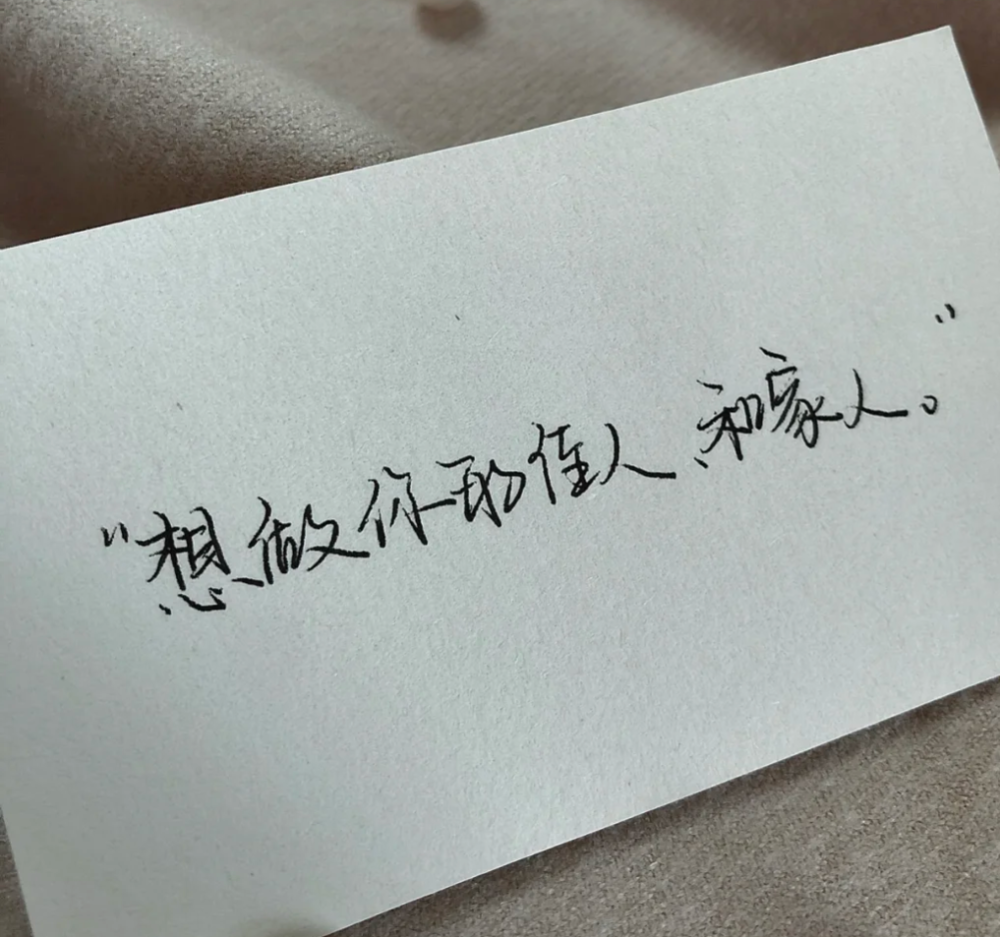 “想做你的佳人、和家人。”